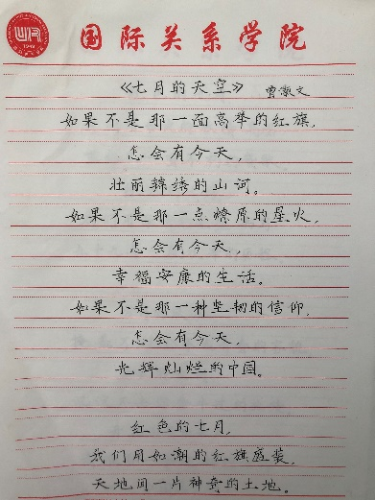 国际关系学院
《七月的天空》 曹
如果不是那一面高举的红旗,
怎会有今天,
壮丽锦绣的山河。
如果不是那一点燎原的星火,
怎会有今天,
幸福安康的生活。
如果不是那一种坚韧的信仰,
怎会有今天,
光辉灿烂的中国。
红色的七月,
我们用如潮的红旗盛装,
天地间一片神奇的土地。